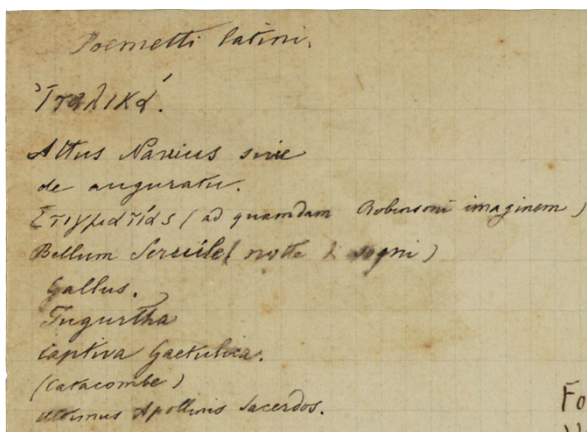 Poemetti latini.
Ἰταλικά.
Attus Navius sive
de auguratu.
Στιγματίας (ad quamdam Robinsoni imaginem)
Bellum Servile (notte di sogni)
Gallus.
Jugurtha
Captiva Gaetulica.
(Catacombe)
Ultimus Apollinis sacerdos.
Fo